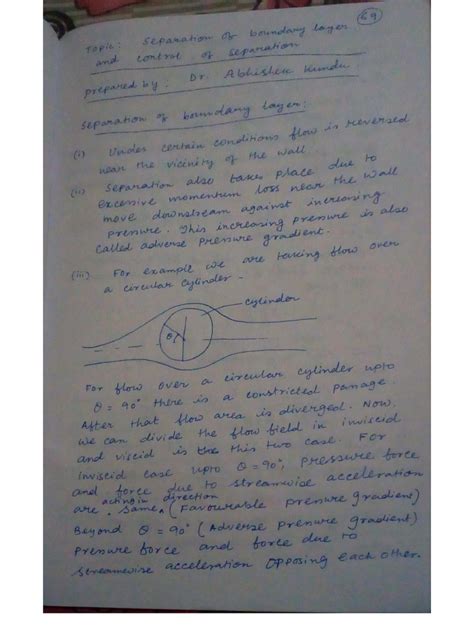 69
Topic: Separation of boundary layer
and control of separation
prepared by: Dr. Abhishek Kundu
Separation of boundary layer:
(i) Under certain conditions flow is reversed
near the vicinity of the wall
(ii) Separation also takes place due to
excessive momentum loss near the wall
move downstream against increasing
pressure. This increasing pressure is also
called adverse pressure gradient.
(iii) For example we are taking flow over
a circular cylinder -
cylinder
θ
For flow over a circular cylinder upto
θ = 90° there is a constricted passage.
After that flow area is diverged. Now,
we can divide the flow field in inviscid
and viscid is the this two case. For
inviscid case upto θ = 90°, pressure force
and force due to streamwise acceleration
acting in direction
are same (Favourable pressure gradient)
Beyond θ = 90° (Adverse pressure gradient)
pressure force and force due to
streamwise acceleration opposing each other.